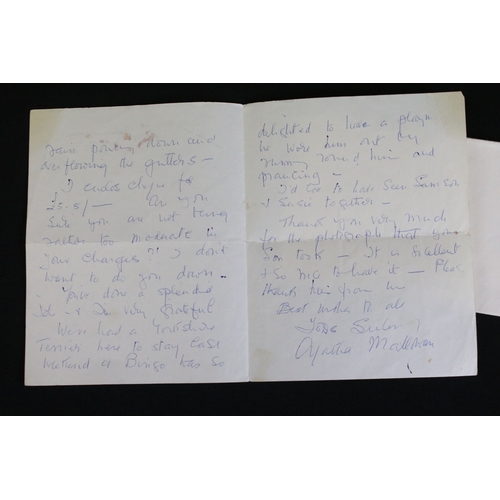 rain pouring down and
overflowing the gutters –
I enclose cheque for
25-5/– Are you
sure you are not being
rather too moderate in
your charges? I don't
want to do you down –
– You've done a splendid
Job – & I'm very grateful
We've had a Yorkshire
Terrier here to stay last
weekend & Bingo was so
delighted to have a playm
he wore him out by
running round him and
prancing –
I'd love to have seen Samson
& Susie together –
Thank you very much
for the photograph that your
took – It is excellent
& so nice to have it – Please
thank him from me
Best wishes to all
Yours
Agatha Mallowan